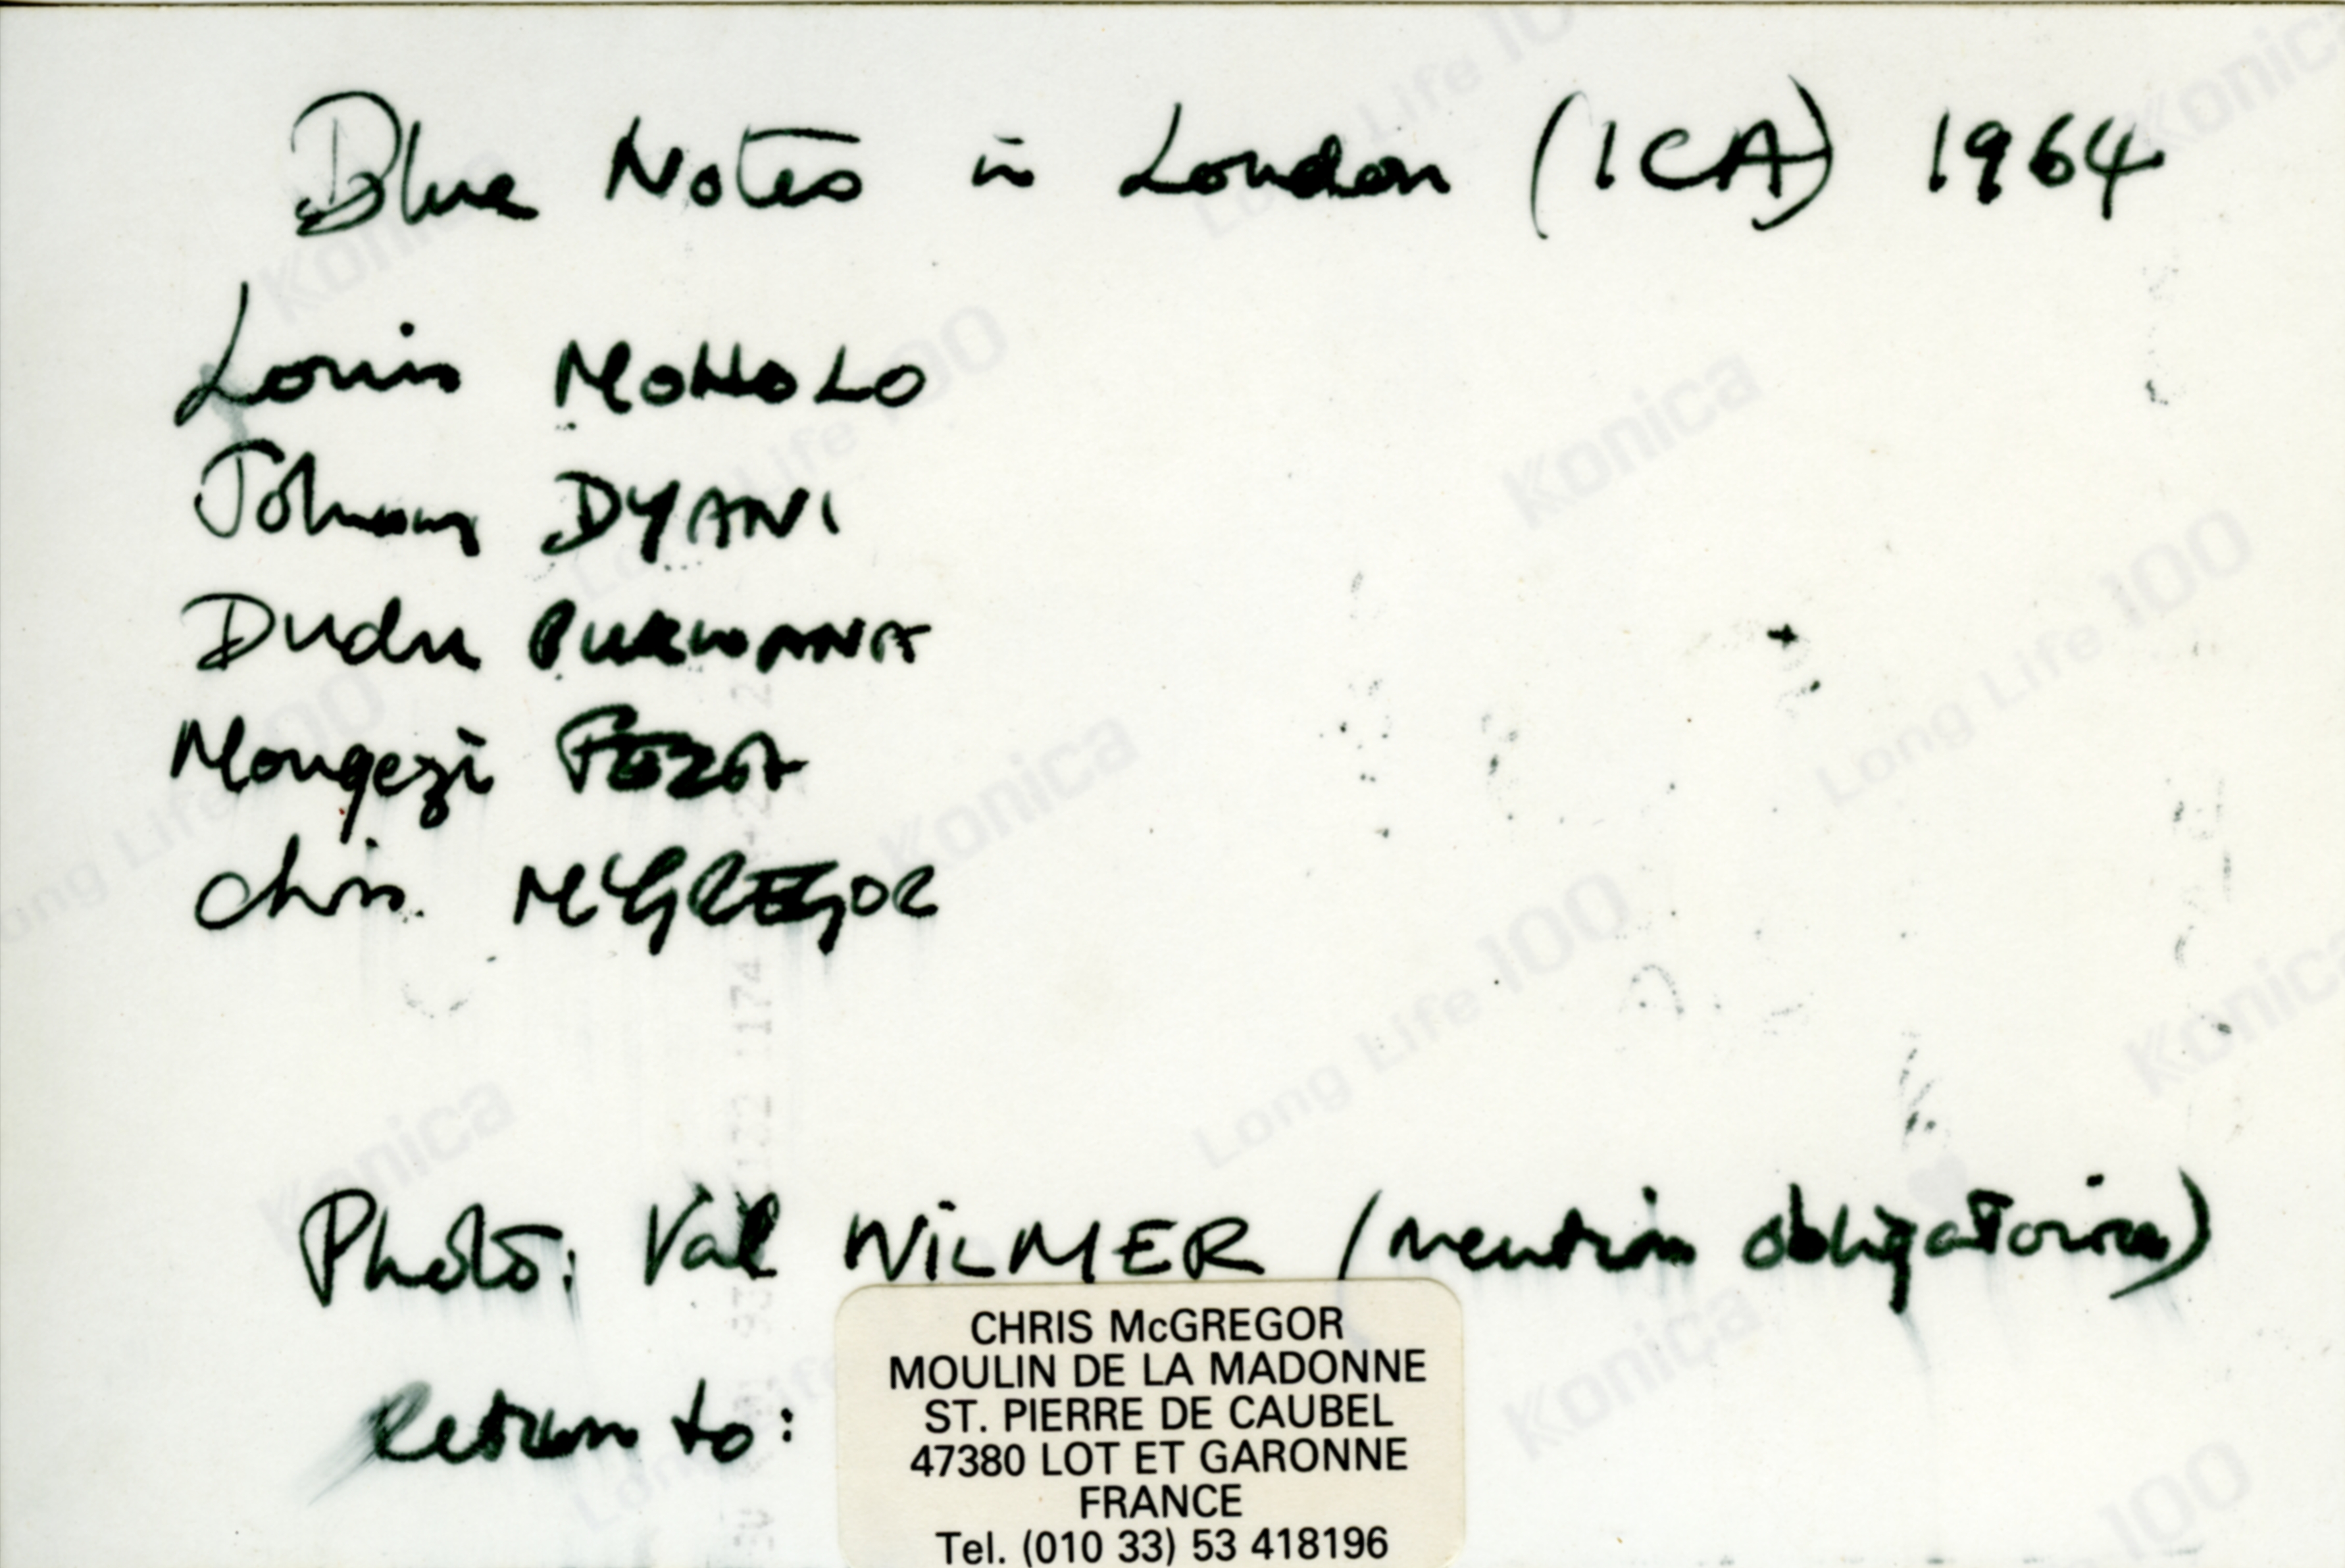 Blue Notes in London (ICA) 1964
Louis MOHOLO
Johnny DYANI
Dudu PUKWANA
Mongezi FEZA
Chris McGREGOR
Photo: Val WILMER (mention obligatoire)
Return to:
CHRIS McGREGOR
MOULIN DE LA MADONNE
ST. PIERRE DE CAUBEL
47380 LOT ET GARONNE
FRANCE
Tel. (010 33) 53 418196
Konica
Long Life 100